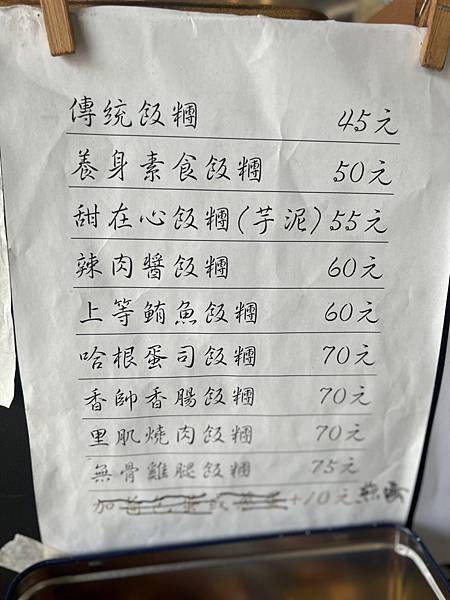 傳統飯糰 45元
養身素食飯糰 50元
甜在心飯糰(芋泥) 55元
辣肉醬飯糰 60元
上等鮪魚飯糰 60元
哈根蛋司飯糰 70元
香帥香腸飯糰 70元
里肌燒肉飯糰 70元
無骨雞腿飯糰 75元
加 +10元